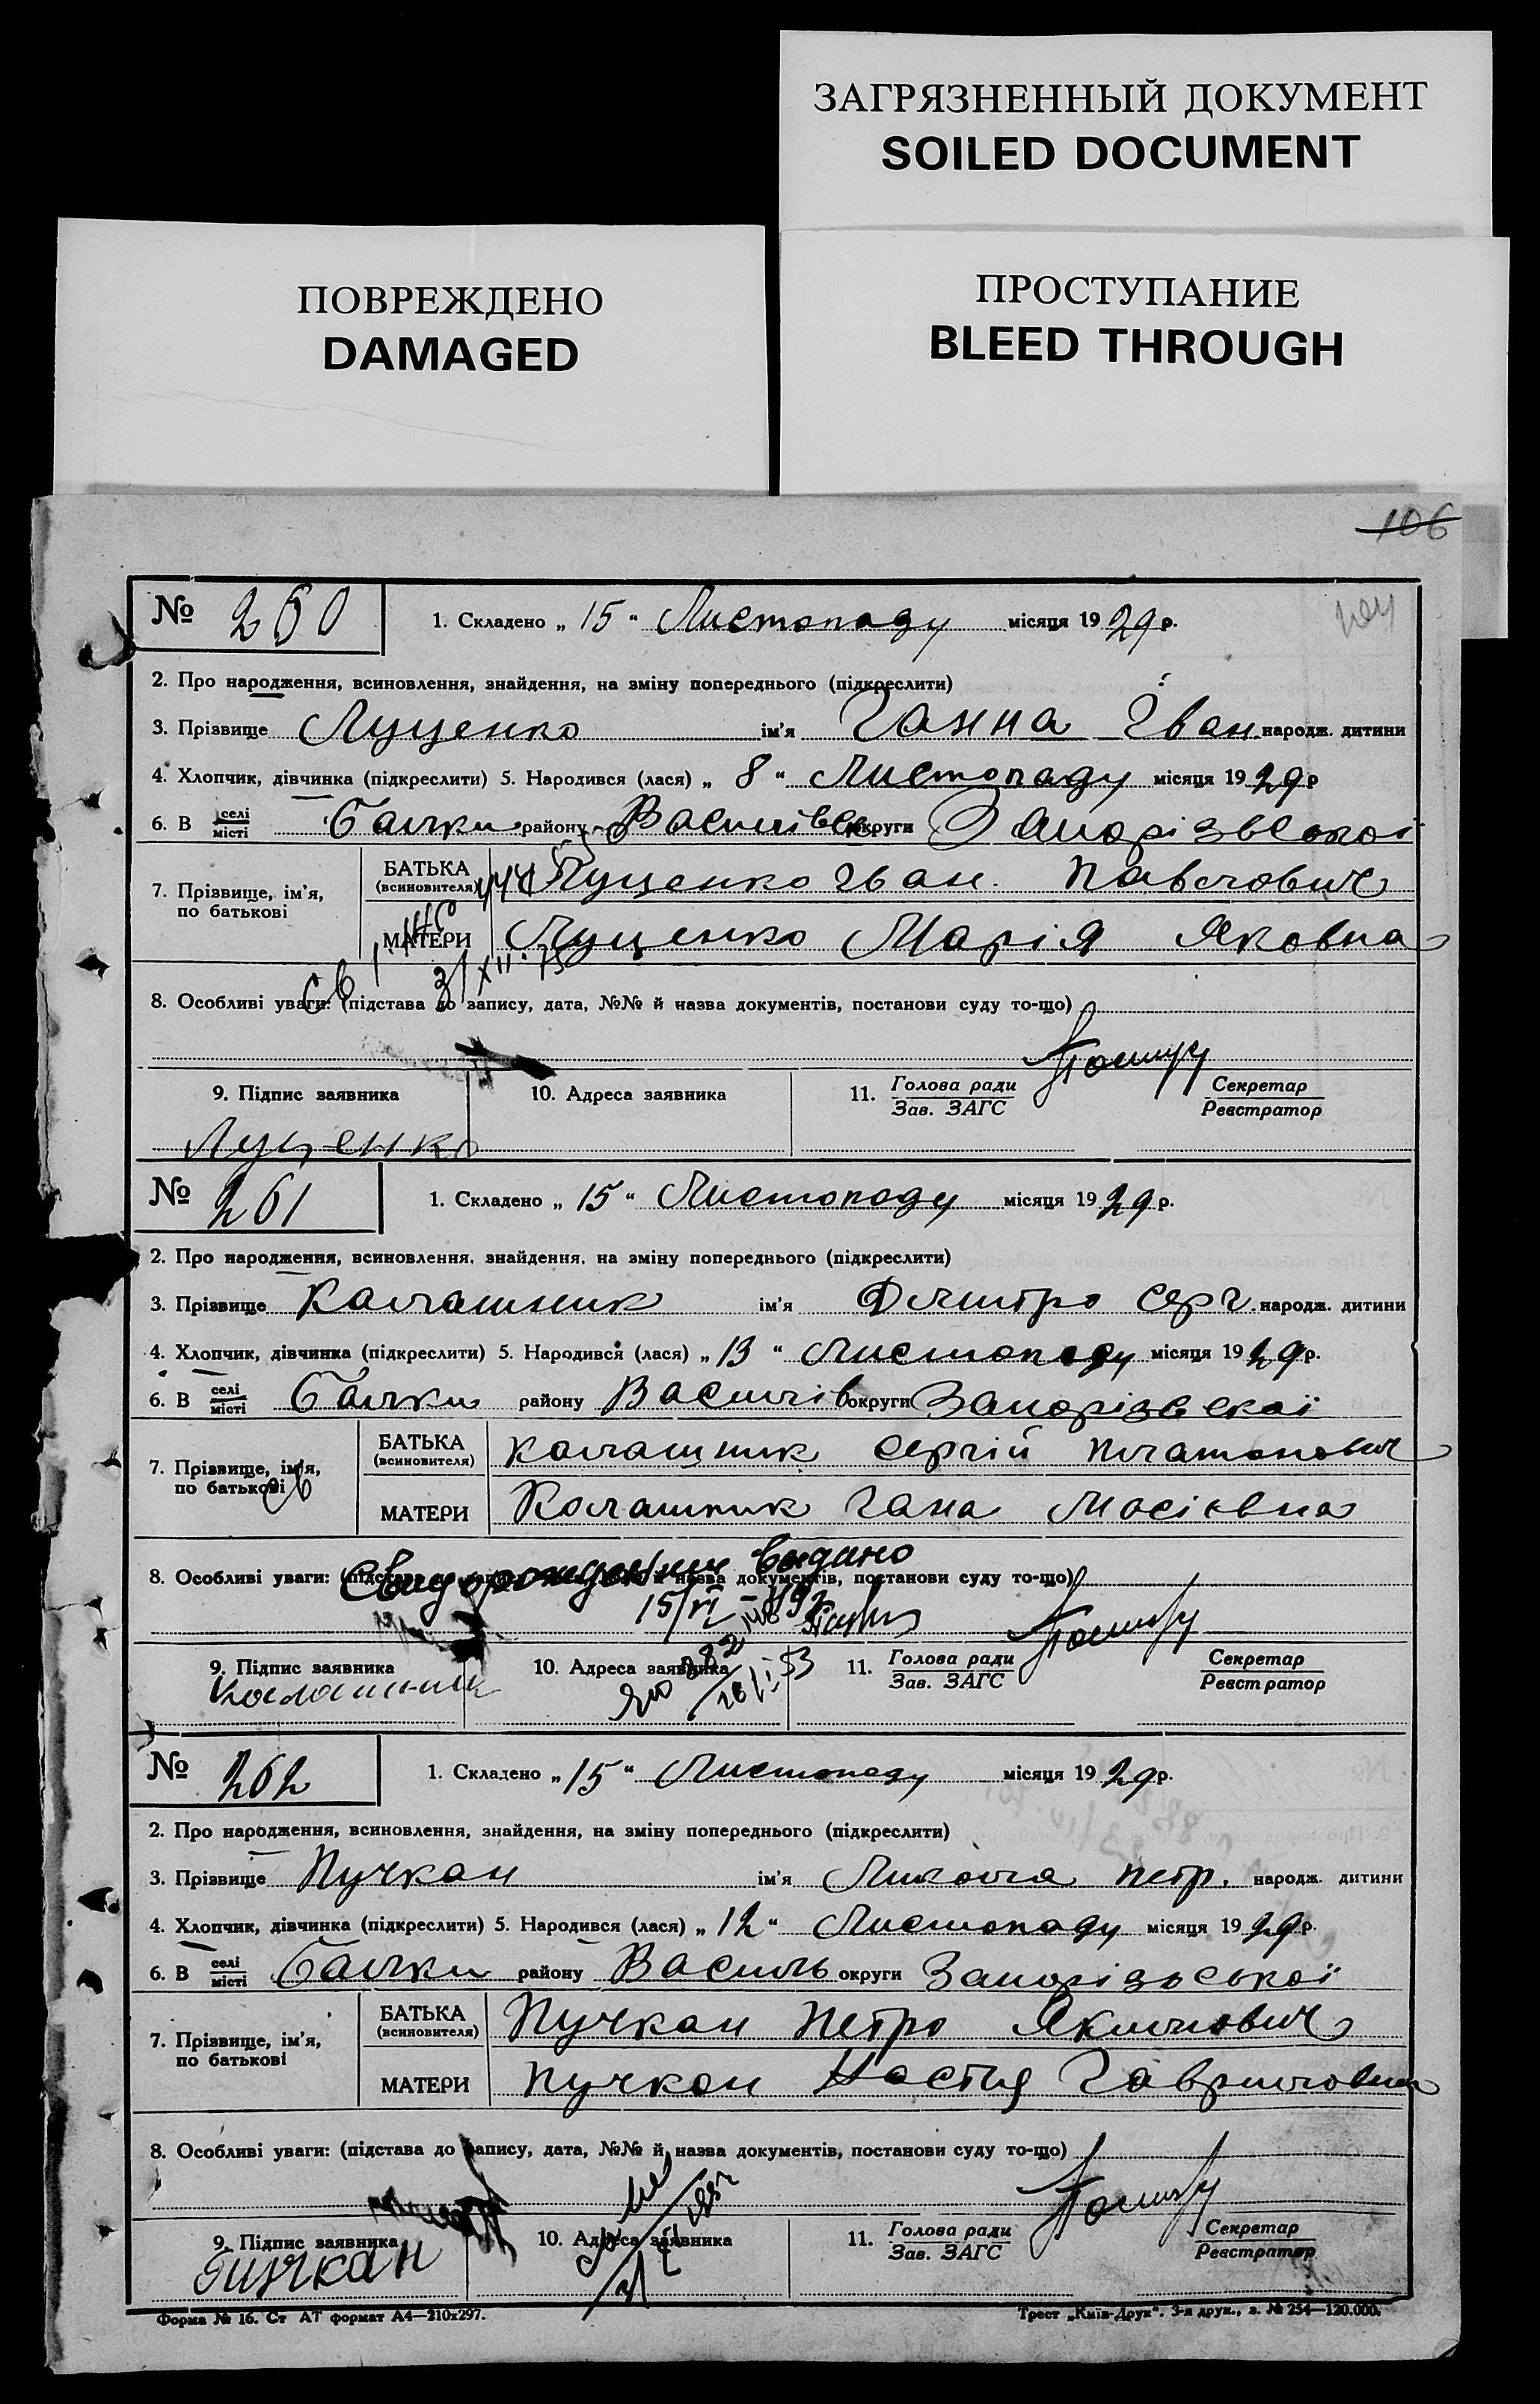 ЗАГРЯЗНЕННЫЙ ДОКУМЕНТ
SOILED DOCUMENT
ПОВРЕЖДЕНО
DAMAGED
ПРОСТУПАНИЕ
BLEED THROUGH
106
№ 260 1. Складено „ 15 “ Листопаду місяця 1929 р.
2. Про народження, всиновлення, знайдення, на зміну попереднього (підкреслити)
3. Прізвище Луценко ім'я Ганна Іван. народж. дитини
4. Хлопчик, дівчинка (підкреслити) 5. Народився (лася) „ 8 “ Листопаду місяця 1929 р
6. В селі/місті Балки району Василівськ округи Запорізвської
7. Прізвище, ім'я, по батькові
БАТЬКА (всиновителя) Луценко Іван. Павлович
МАТЕРИ Луценко Марія Яковна
31/XII. 75
8. Особливі уваги: (підстава до запису, дата, №№ й назва документів, постанови суду то-що)
9. Підпис заявника 10. Адреса заявника 11. Голова ради/Зав. ЗАГС Секретар/Реєстратор
Луценко
№ 261 1. Складено „ 15 “ Листопаду місяця 1929 р.
2. Про народження, всиновлення, знайдення, на зміну попереднього (підкреслити)
3. Прізвище Калашник ім'я Дмитро Серг. народж. дитини
4. Хлопчик, дівчинка (підкреслити) 5. Народився (лася) „ 13 “ Листопаду місяця 1929 р.
6. В селі/місті Балки району Василів округи Запорізвскої
7. Прізвище, ім'я, по батькові
БАТЬКА (всиновителя) Калашник Сергій Платонович
МАТЕРИ Калашник Гана Мосієвна
8. Особливі уваги: (підстава до запису, дата, №№ й назва документів, постанови суду то-що)
9. Підпис заявника 10. Адреса заявника 11. Голова ради/Зав. ЗАГС Секретар/Реєстратор
Калашник
№ 262 1. Складено „ 15 “ Листопаду місяця 1929 р.
2. Про народження, всиновлення, знайдення, на зміну попереднього (підкреслити)
3. Прізвище Пучкан ім'я Микола петр. народж. дитини
4. Хлопчик, дівчинка (підкреслити) 5. Народився (лася) „ 12 “ Листопаду місяця 1929 р.
6. В селі/місті Балки району Василь округи Запорізьської
7. Прізвище, ім'я, по батькові
БАТЬКА (всиновителя) Пучкан Петро Якимович
МАТЕРИ Пучкан Настя Гавриловна
8. Особливі уваги: (підстава до запису, дата, №№ й назва документів, постанови суду то-що)
9. Підпис заявника 10. Адреса заявника 11. Голова ради/Зав. ЗАГС Секретар/Реєстратор
Форма № 16. Ст АТ формат А4—210х297. Трест „Київ-Друк“. 3-я друк., з. № 254—120.000.